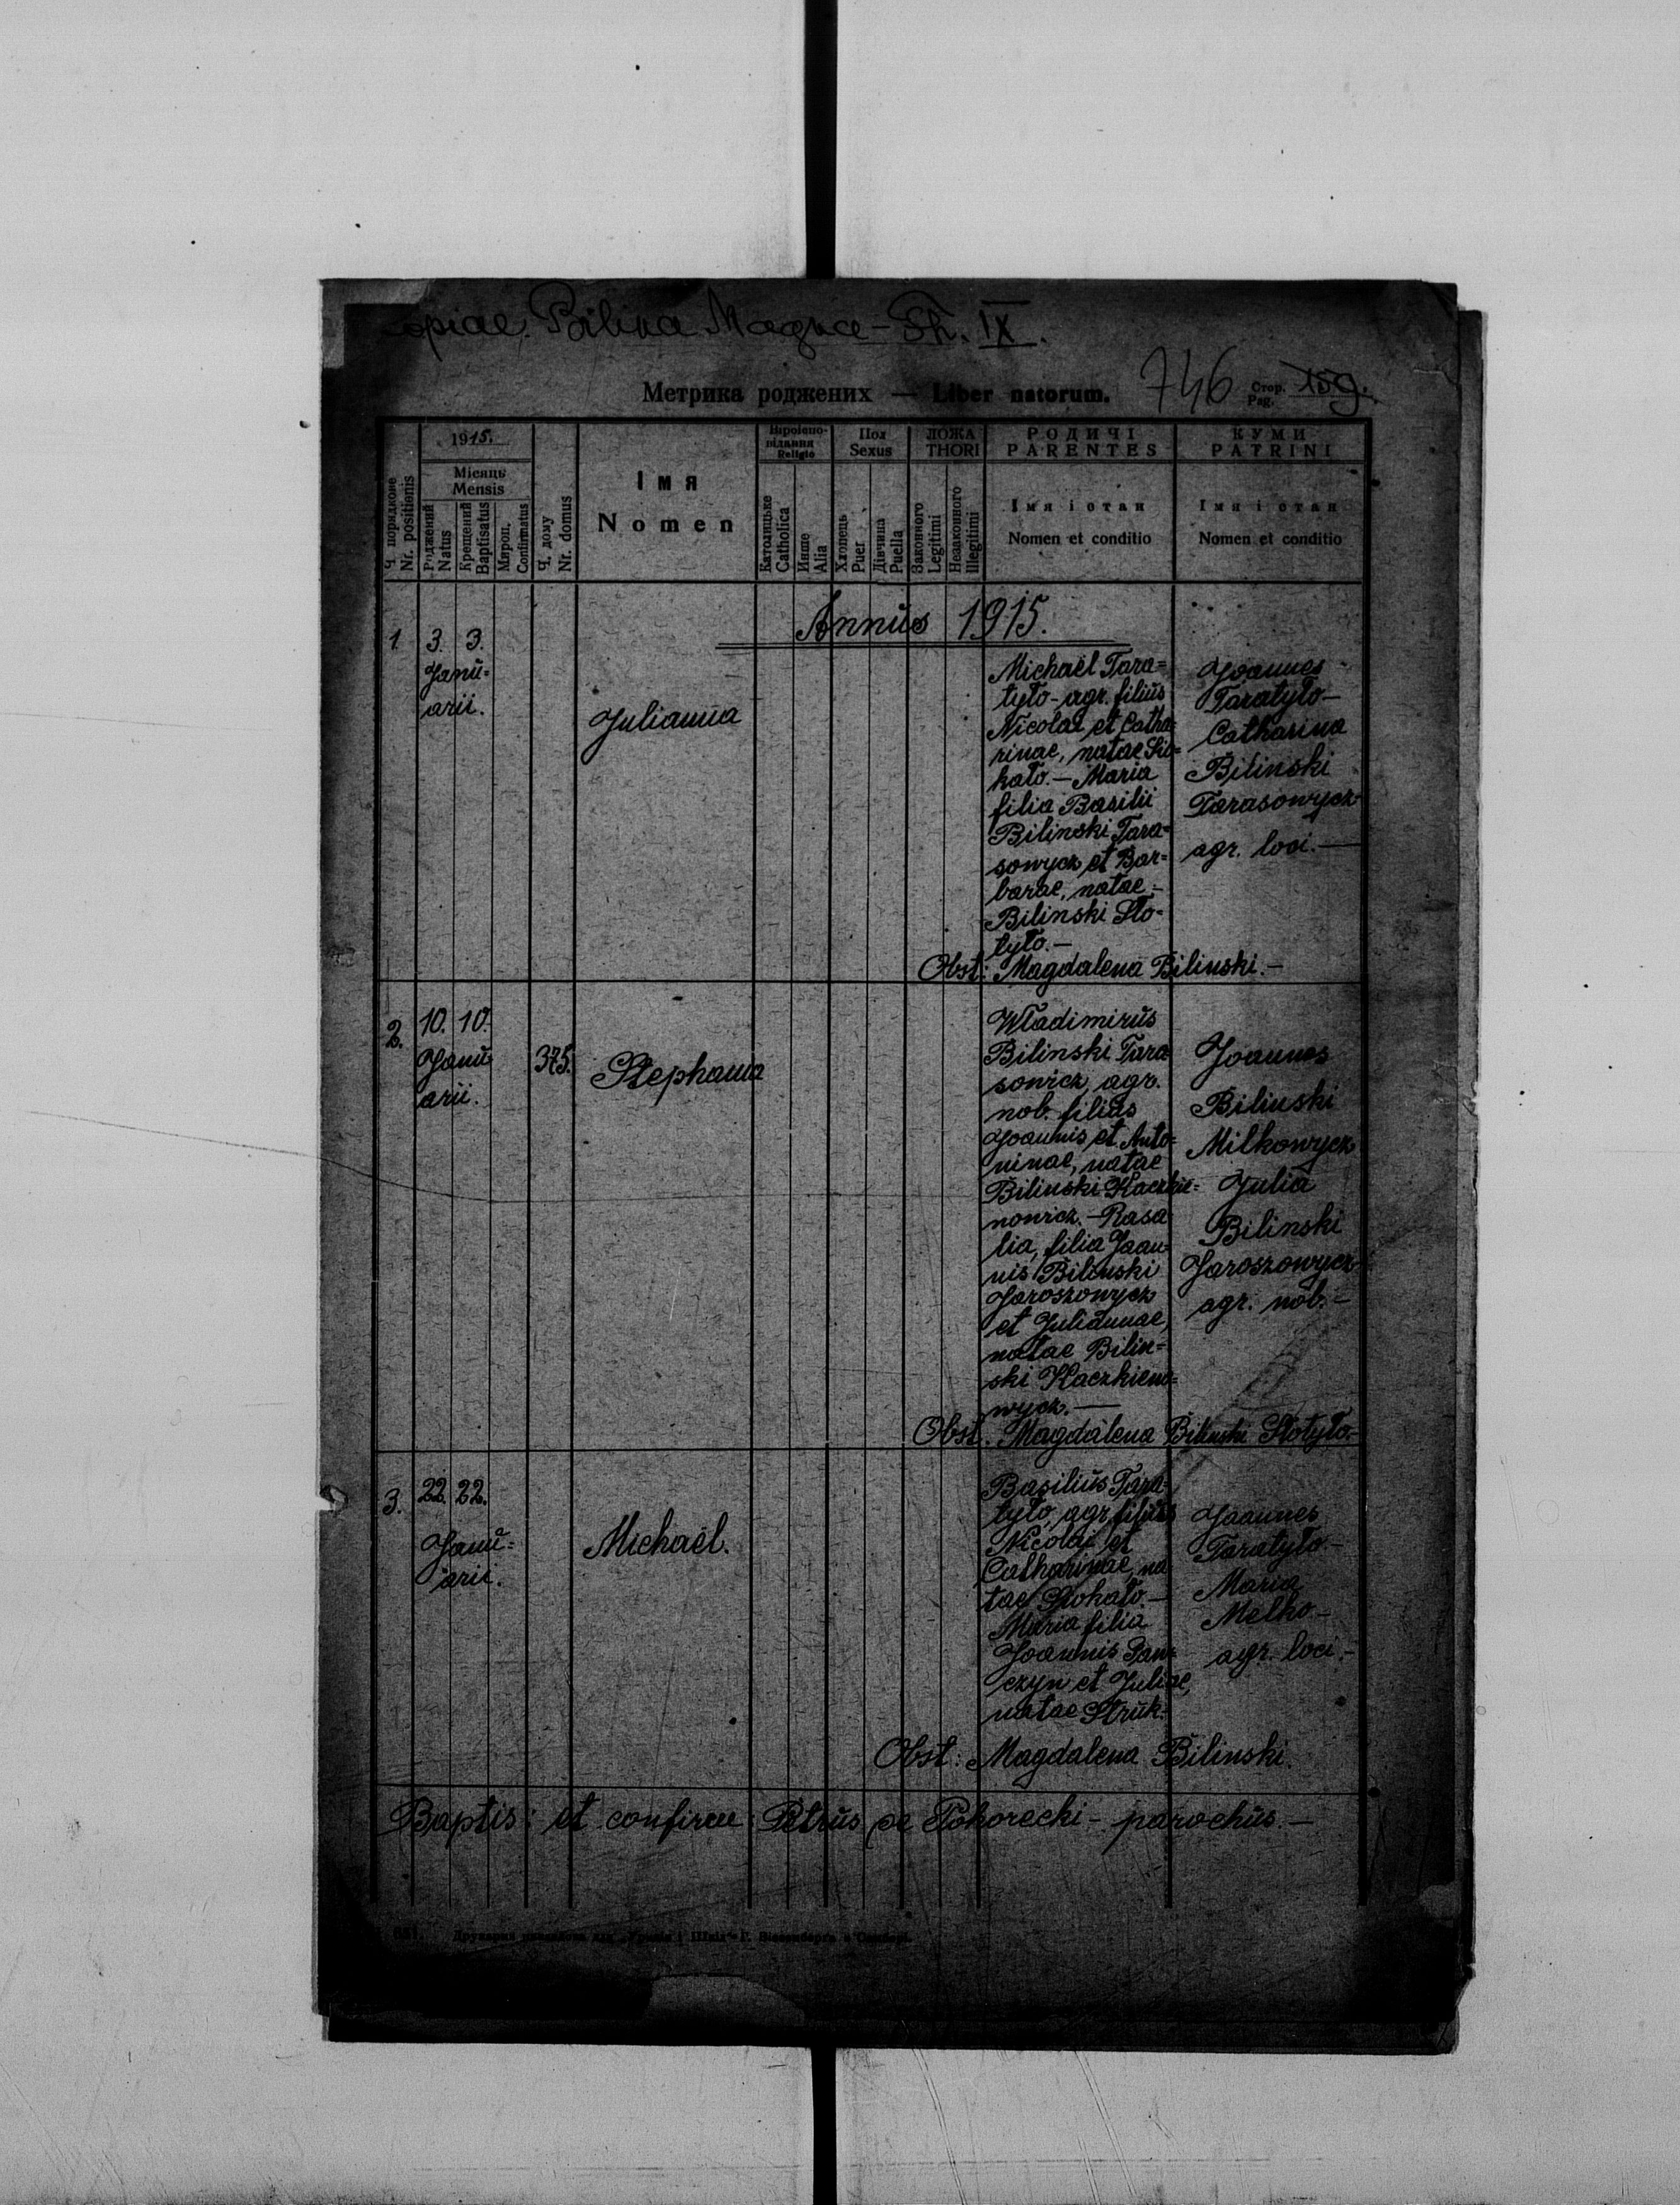 Copiae. Bilina Magna – Th. IX.
746
Метрика роджених — Liber natorum.
Стор. Pag. 159.
Ч. порядкове
Nr. positionis
1915.
Місяць
Mensis
Роджений
Natus
Крещений
Baptisatus
Мироп.
Confirmatus
Ч. дому
Nr. domus
Імя
Nomen
Віроіспо-
відання
Religio
Католицьке
Catholica
Инше
Alia
Пол
Sexus
Хлопець
Puer
Дівчина
Puella
ЛОЖА
THORI
Законного
Legitimi
Незаконного
Illegitimi
РОДИЧІ
PARENTES
Імя і стан
Nomen et conditio
КУМИ
PATRINI
Імя і стан
Nomen et conditio
Annus 1915.
1. 3. 3.
Janu=
arii.
Julianna
Michaël Tara=
tyto - agr. filius
Nicolai et Catha=
rinae, natae
hato. — Maria
filia Basilii
Bilinski Tara=
sowycz et Bar=
barae, natae -
Bilinski Sło-
tyło. —
Joannes -
Taratyło —
Catharina
Bilinski
Tarasowycz
agr. loci. —
Obst: Magdalena Bilinski. —
2. 10. 10.
Janu
arii.
375.
Stephania
Wladimirus
Bilinski Tara
sowicz, agr.
nob. filius
Joannis et Anto=
ninae, natae
Bilinski Kaczkie=
nowicz. — Rosa
lia, filia Joan
nis Bilinski
Jaroszowycz
et Juliannae,
natae Bilin=
ski Kaczkieno=
wycz. —
Joannes
Bilinski
Milkowycz
Julia
Bilinski
Jaroszowycz
agr. nob. —
Obst. Magdalena Bilinski Słotyło. —
3. 22. 22.
Janu=
arii.
Michaël.
Basilius Tara=
tyło, agr. filius
Nicolai et
Catharinae, na
tae Stohato. —
Maria filia
Joannis Pan=
czyn et Juliae,
natae Struk.
Joannes
Taratyło —
Maria
Melko —
agr. loci. —
Obst: Magdalena Bilinski.
Baptis: et confirm: Petrus de Pohorecki — parochus. —